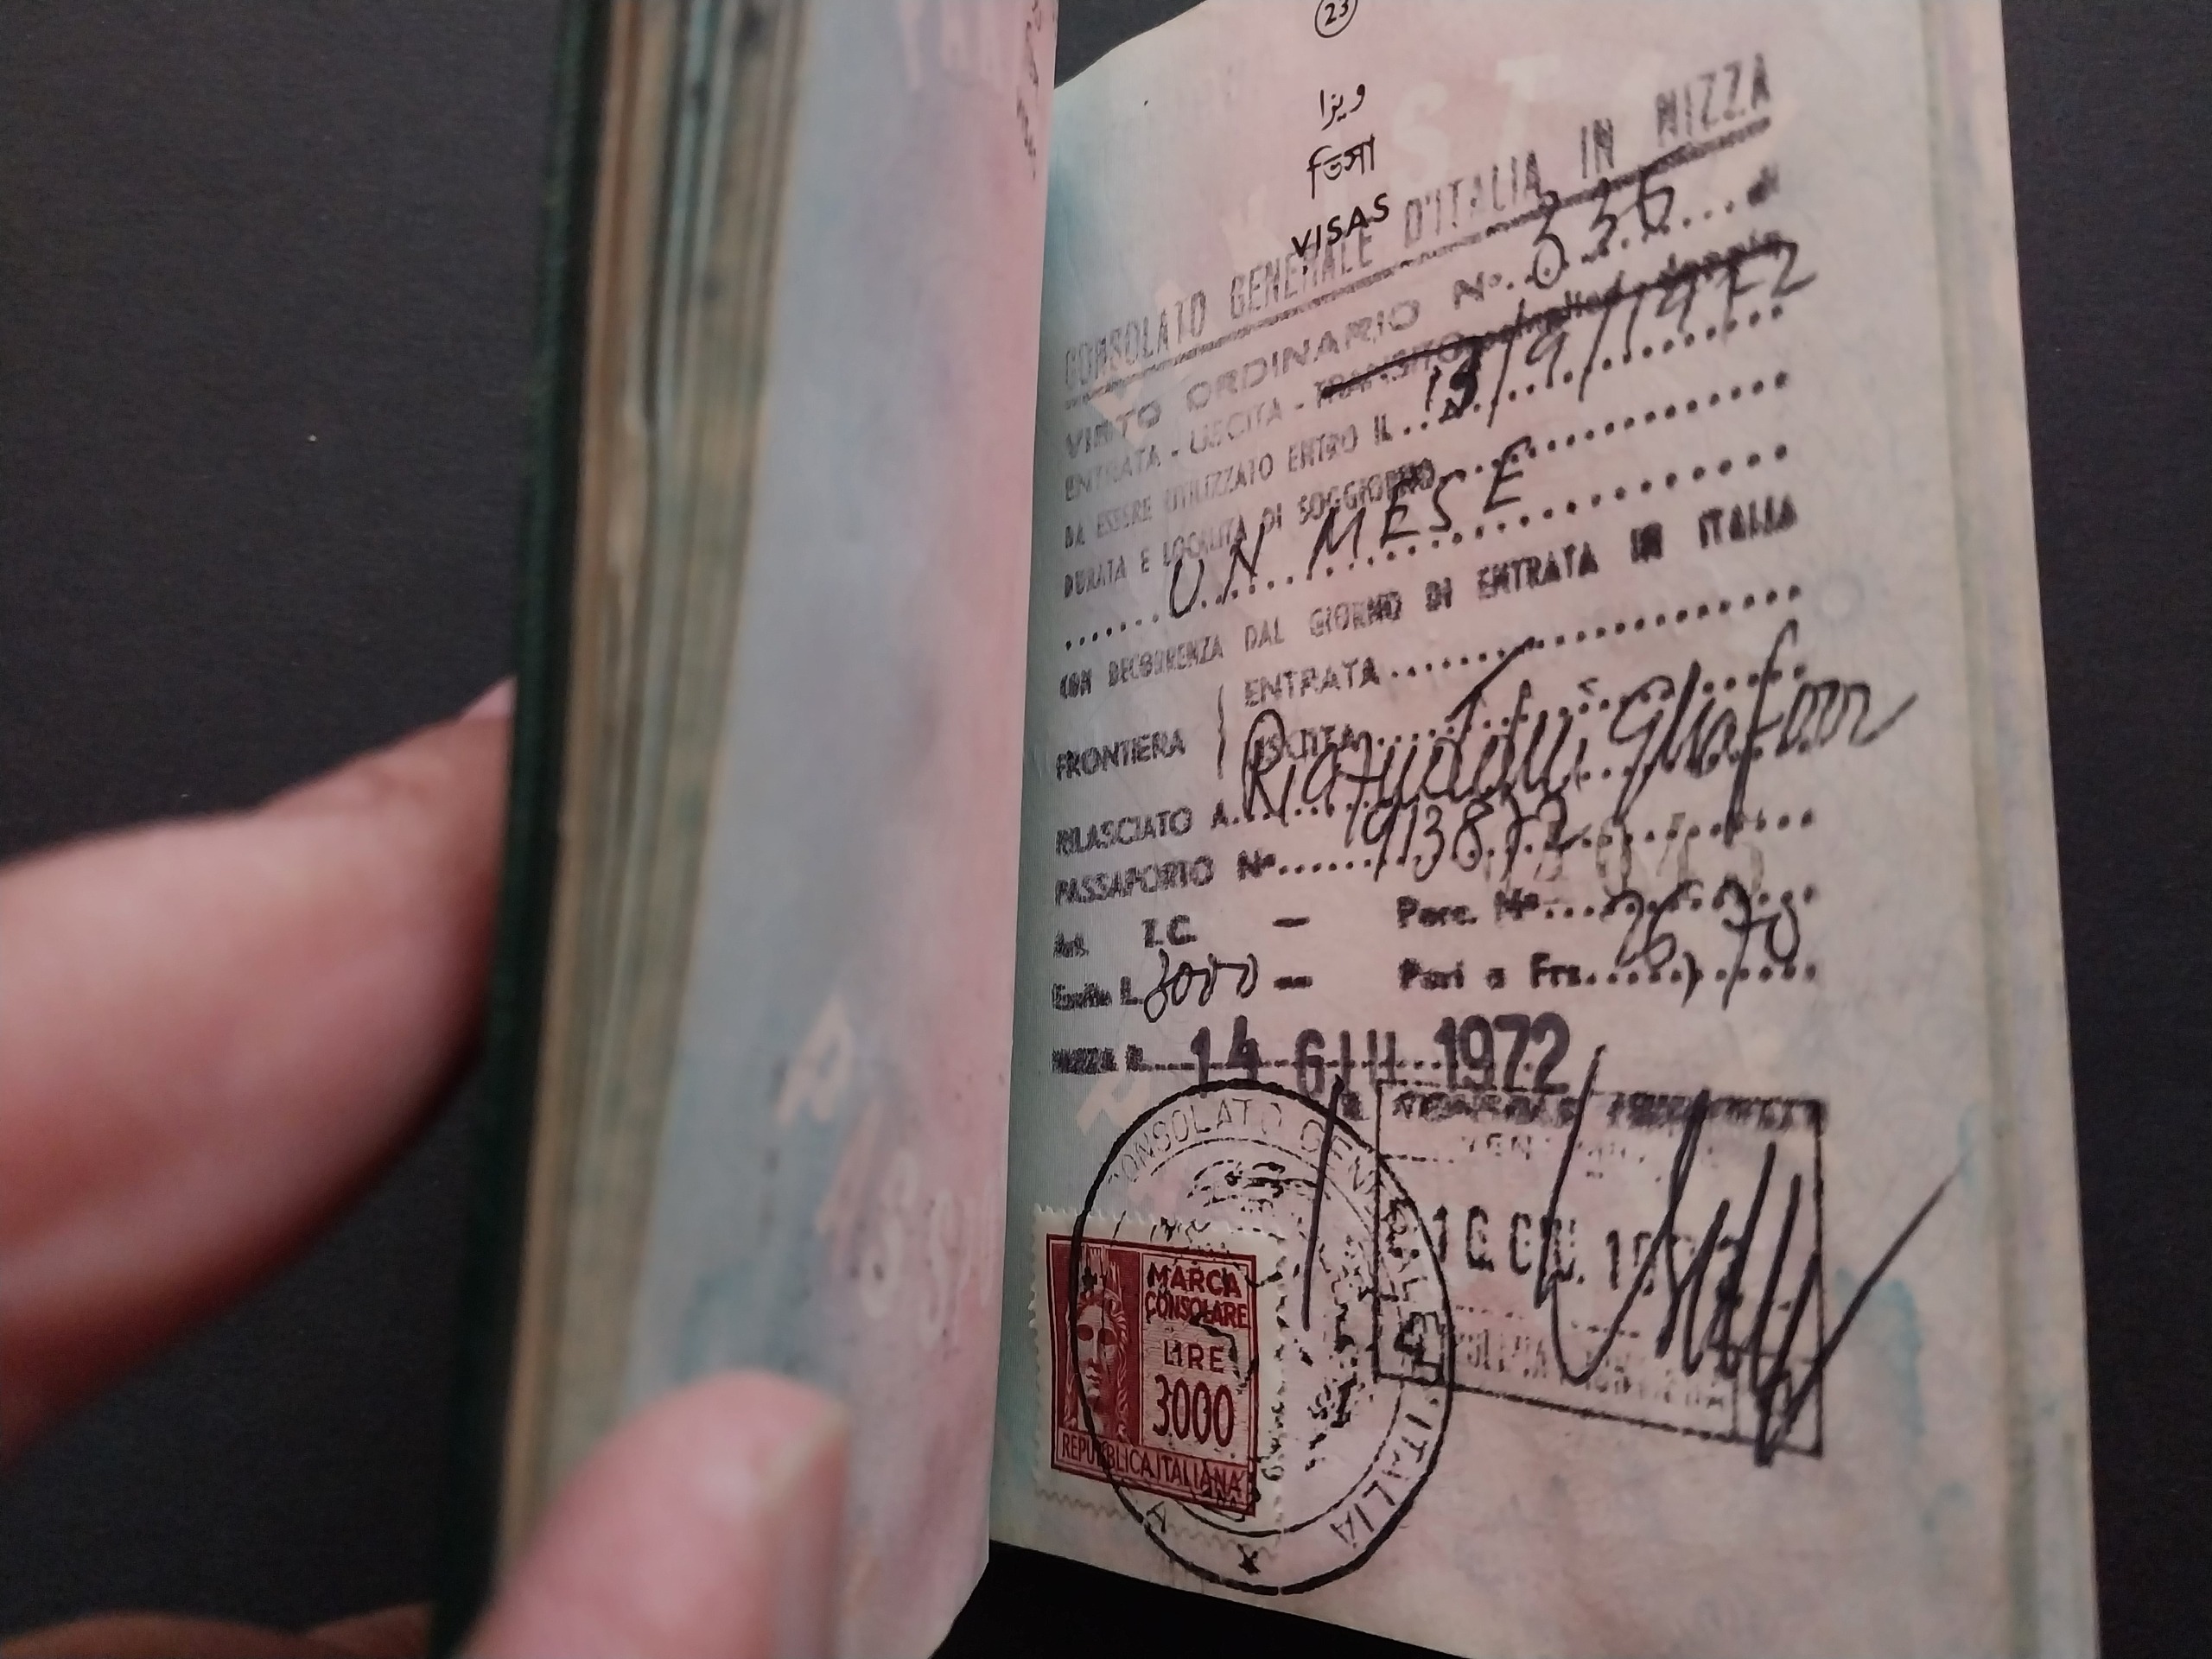 23
ویزا
ভিসা
VISAS
CONSOLATO GENERALE D'ITALIA IN NIZZA
VISTO ORDINARIO N°. 336
ENTRATA - USCITA - TRANSITO
DA ESSERE UTILIZZATO ENTRO IL 13/9/1972
DURATA E LOCALITA DI SOGGIORNO
UN MESE
CON DECORRENZA DAL GIORNO DI ENTRATA IN ITALIA
FRONTIERA
ENTRATA
USCITA
RILASCIATO A
PASSAPORTO N°
Art. T.C. — Perc. N°
L. 3000 — Pari a Frs. 26,70
NIZZA 14 GIU 1972
CONSOLATO GENERALE D'ITALIA
MARCA
CONSOLARE
LIRE
3000
REPUBBLICA ITALIANA